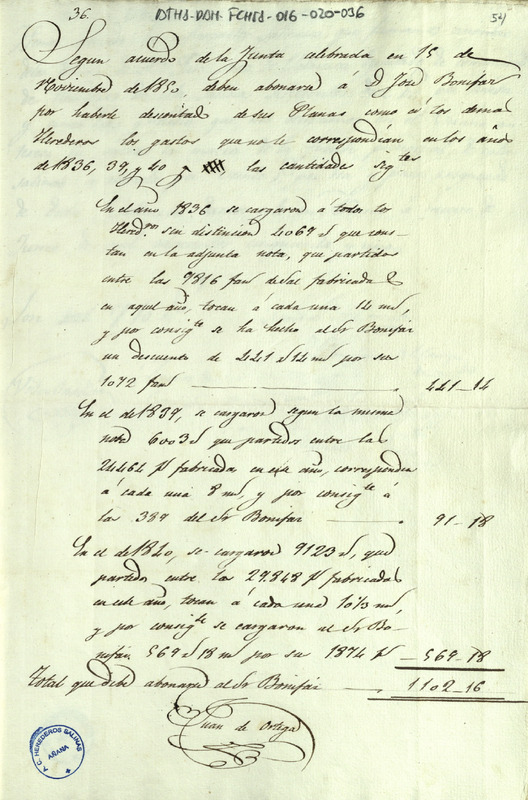 36.
DTHS-DOM-FCHTS-016-020-036
54
Segun acuerdo de la Junta celebrada en 15 de
Noviembre de 1850, deben abonarse á D. José Bonifaz
por haberle descontado de sus Planas como á los demas
Herederos los gastos que no le correspondían en los años
de 1836, 39, y 40 las cantidades sigtes
En el año 1836 se cargaron á todos los
Heredos sin distincion 4069 que cons-
tan en la adjunta nota, que partidos
entre las 9816 fans de sal fabricadas
en aquel año, tocan á cada una 14 ms,
y por consigte se ha hecho al Sr Bonifaz
un descuento de 441 14 ms por sus
1072 fans 441-14
En el de 1839, se cargaron segun la misma
nota 6003 que partidos entre las
24464 fs fabricadas en este año, corresponden
á cada una 8 ms, y por consigte á
las 389 del Sr Bonifaz 91-18
En el de 1840, se cargaron 9123 , que
partidos entre las 29.848 fs fabricadas
en este año, tocan á cada una 10 1/3 ms,
y por consigte se cargaron al Sr Bo-
nifaz 569 18 ms por sus 1874 fs 569-18
Total que debe abonarse al Sr Bonifaz 1102-16
Juan de Ortega
C. HEREDEROS SALINAS
AÑANA